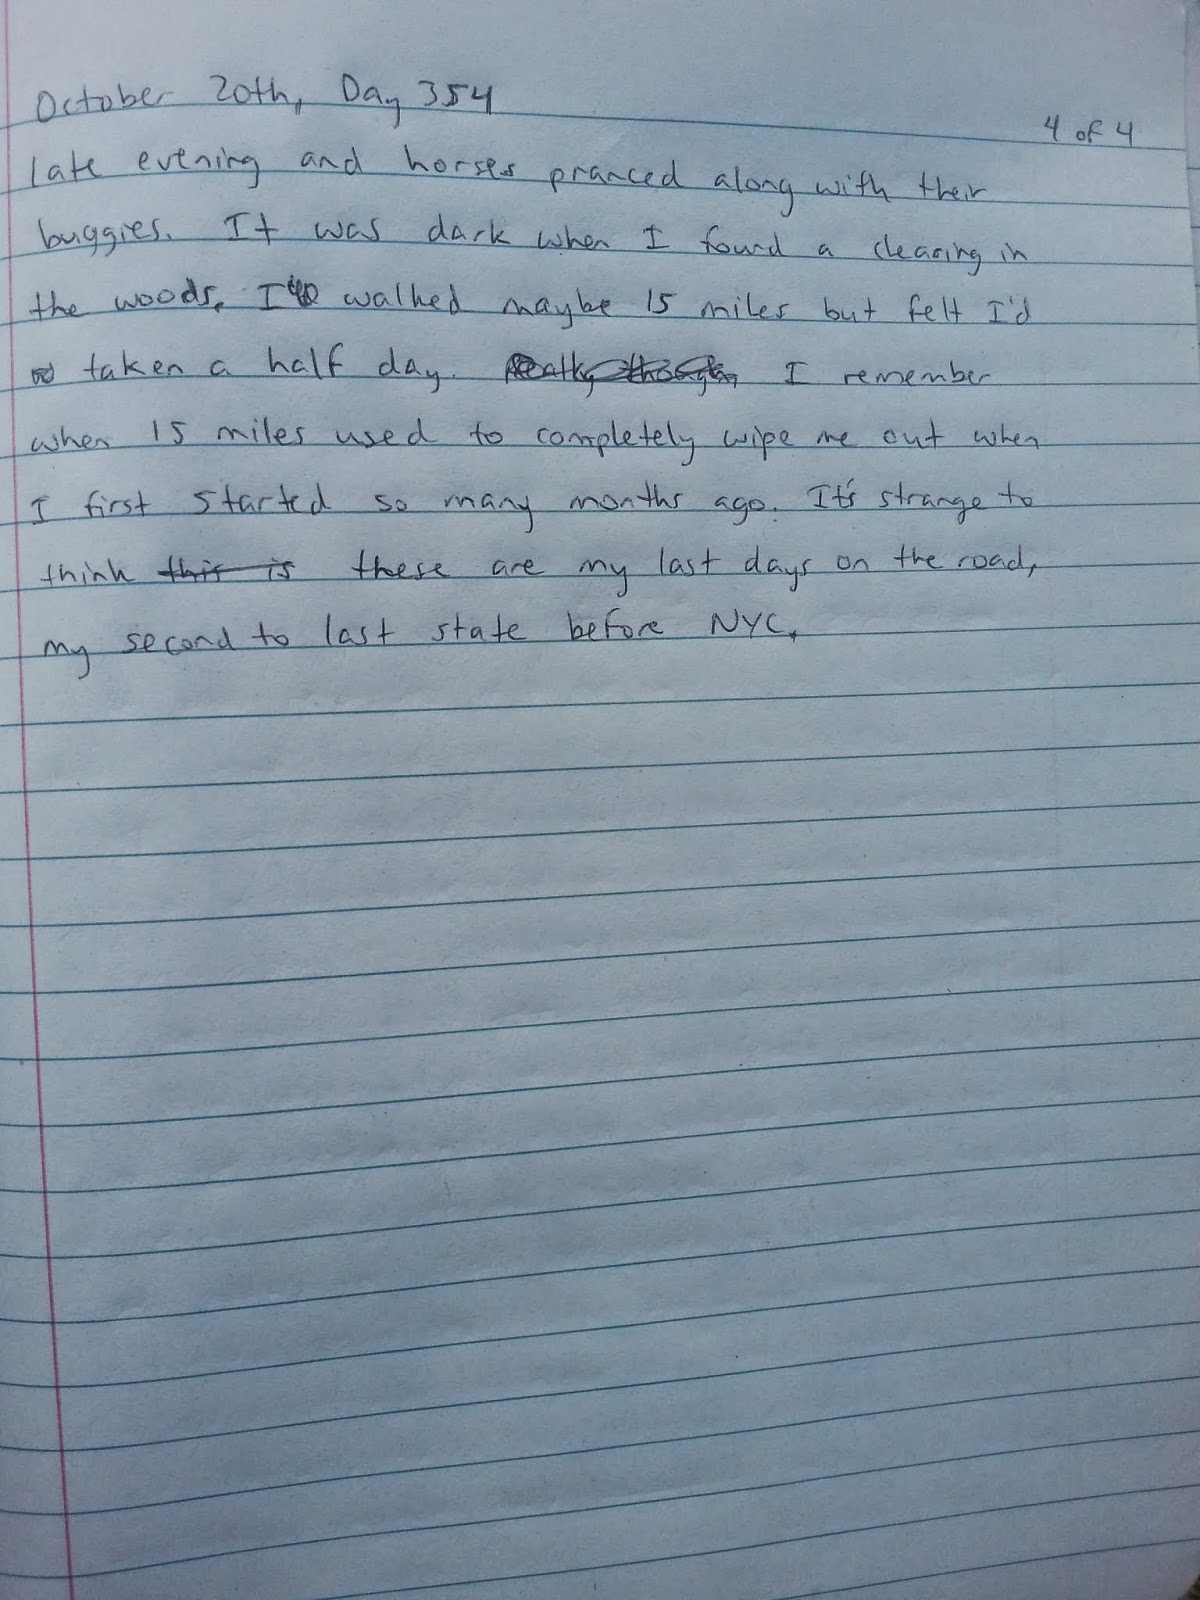 October 20th, Day 354
4 of 4
late evening and horses pranced along with their
buggies. It was dark when I found a clearing in
the woods. I walked maybe 15 miles but felt I'd
taken a half day. I remember
when 15 miles used to completely wipe me out when
I first started so many months ago. It's strange to
think this is these are my last days on the road,
my second to last state before NYC.